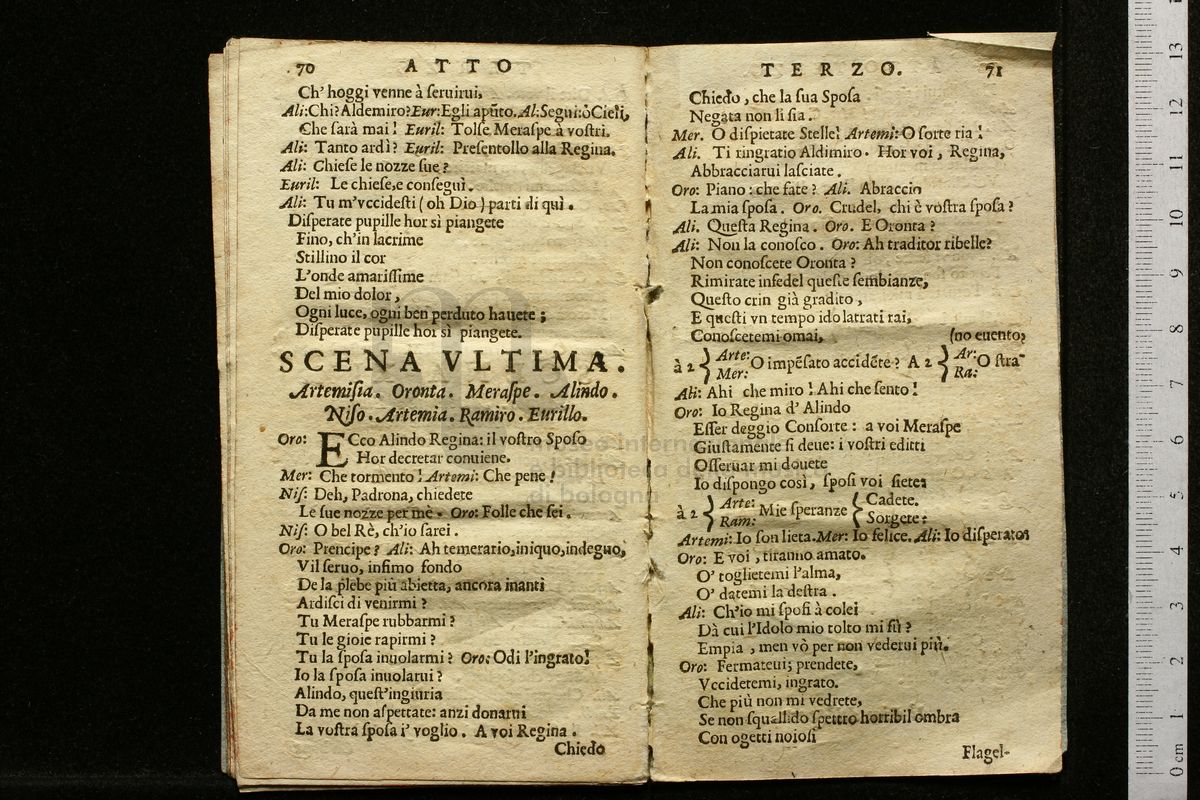 70 ATTO
Ch' hoggi venne à seruirui,
Ali:Chi? Aldemiro? Eur: Egli apũto. Al:Segui: ò Cieli,
Che sarà mai! Euril: Tolse Meraspe à vostri.
Ali: Tanto ardì? Euril: Presentollo alla Regina.
Ali: Chiese le nozze sue?
Euril: Le chiese, e conseguì.
Ali: Tu m'vccidesti (oh Dio) parti di quì.
Disperate pupille hor sì piangete
Fino, ch'in lacrime
Stillino il cor
L'onde amarissime
Del mio dolor,
Ogni luce, ogni ben perduto hauete;
Disperate pupille hor sì piangete.
SCENA VLTIMA.
Artemisia. Oronta. Meraspe. Alindo.
Niso. Artemia. Ramiro. Eurillo.
Oro: ECco Alindo Regina: il vostro Sposo
Hor decretar conuiene.
Mer: Che tormento! Artemi: Che pene!
Nis: Deh, Padrona, chiedete
Le sue nozze per mè. Oro: Folle che sei.
Nis: O bel Rè, ch'io sarei.
Oro: Prencipe? Ali: Ah temerario, iniquo, indegno,
Vil seruo, infimo fondo
De la plebe più abietta, ancora inanti
Ardisci di venirmi?
Tu Meraspe rubbarmi?
Tu le gioie rapirmi?
Tu la sposa inuolarmi? Oro: Odi l'ingrato!
Io la sposa inuolarui?
Alindo, quest'ingiuria
Da me non aspettate: anzi donarui
La vostra sposa i' voglio. A voi Regina.
Chiedo
TERZO. 71
Chiedo, che la sua Sposa
Negata non li sia.
Mer. O dispietate Stelle! Artemi: O sorte ria!
Ali. Ti ringratio Aldimiro. Hor voi, Regina,
Abbracciatui lasciate.
Oro: Piano: che fate? Ali. Abraccio
La mia sposa. Oro. Crudel, chi è vostra sposa?
Ali. Questa Regina. Oro. E Oronta?
Ali: Non la conosco. Oro: Ah traditor ribelle?
Non conoscete Oronta?
Rimirate infedel queste sembianze,
Questo crin già gradito,
E questi vn tempo idolatrati rai,
Conoscetemi omai, (no euento?
à 2 } Arte: Mer: O impẽsato accidẽte? A 2 } Ar: Ra: O stra-
Ali: Ahi che miro! Ahi che sento!
Oro: Io Regina d' Alindo
Esser deggio Consorte: a voi Meraspe
Giustamente si deue: i vostri editti
Osseruar mi douete
Io dispongo così, sposi voi siete:
à 2 } Arte: Ram: Mie speranze { Cadete. Sorgete:
Artemi: Io son lieta. Mer: Io felice. Ali: Io disperato:
Oro: E voi, tiranno amato.
O' toglietemi l'alma,
O' datemi la destra.
Ali: Ch'io mi sposi à colei
Dà cui l'Idolo mio tolto mi fù?
Empia, men vò per non vederui più.
Oro: Fermateui; prendete,
Vccidetemi, ingrato.
Che più non mi vedrete,
Se non squallido spettro horribil ombra
Con ogetti noiosi
Flagel-